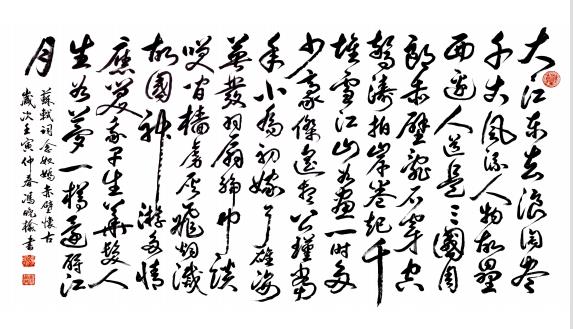 大江东去浪淘尽
千古風流人物故壘
西边人道是三國周
郎赤壁亂石穿空
驚濤拍岸卷起千
堆雪江山如畫一時多
少豪傑遥想公瑾當
年小喬初嫁了雄姿
英發羽扇綸巾談
笑间檣虜灰飛烟滅
故國神游多情
應笑我早生華髮人
生如夢一樽還酹江
月
蘇軾詞念奴嬌赤壁懷古
歲次壬寅仲春馮書